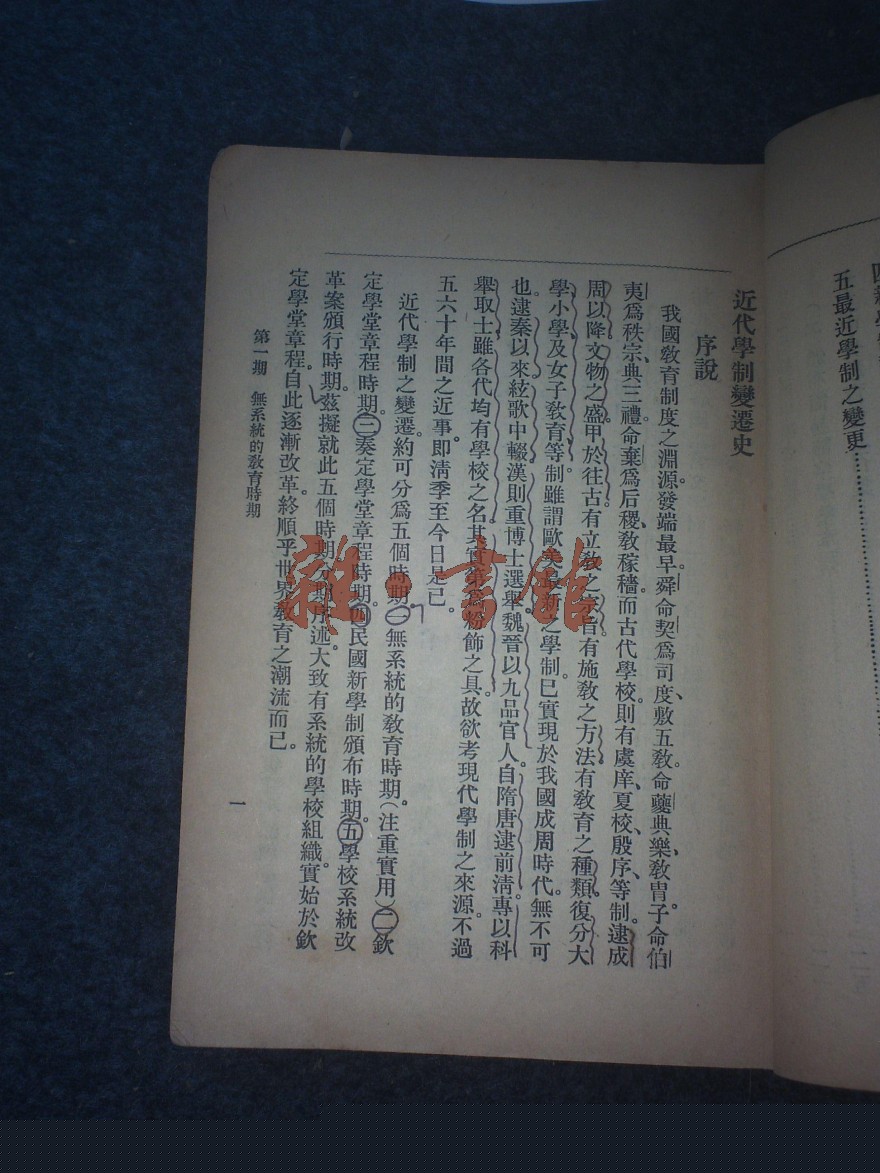 五最近學制之變更
近代學制變遷史
序說
我國敎育制度之淵源。發端最早。舜命契爲司度、敷五敎。命夔典樂、敎胄子。命伯
夷爲秩宗、典三禮。命棄爲后稷、敎稼穡。而古代學校、則有虞庠、夏校、殷序、等制。逮成
周以降。文物之盛。甲於往古。有立敎之宗旨。有施敎之方法。有敎育之種類。復分大
學小學、及女子敎育等制。雖謂歐美最新之學制。已實現於我國成周時代。無不可
也。逮秦以來。絃歌中輟。漢則重博士選舉。魏晉以九品官人。自隋唐逮前淸。專以科
舉取士。雖各代均有學校之名。其實第爲粉飾之具。故欲考現代學制之來源。不過
五六十年間之近事。卽淸季至今日是已。
近代學制之變遷。約可分爲五個時期。㊀無系統的敎育時期。(注重實用)㊁欽
定學堂章程時期。㊂奏定學堂章程時期。㊃民國新學制頒布時期。㊄學校系統改
革案頒行時期。茲擬就此五個時期。分期序述。大致有系統的學校組織。實始於欽
定學堂章程。自此逐漸改革。終順乎世界敎育之潮流而已。
第一期 無系統的敎育時期
一
雜·書館